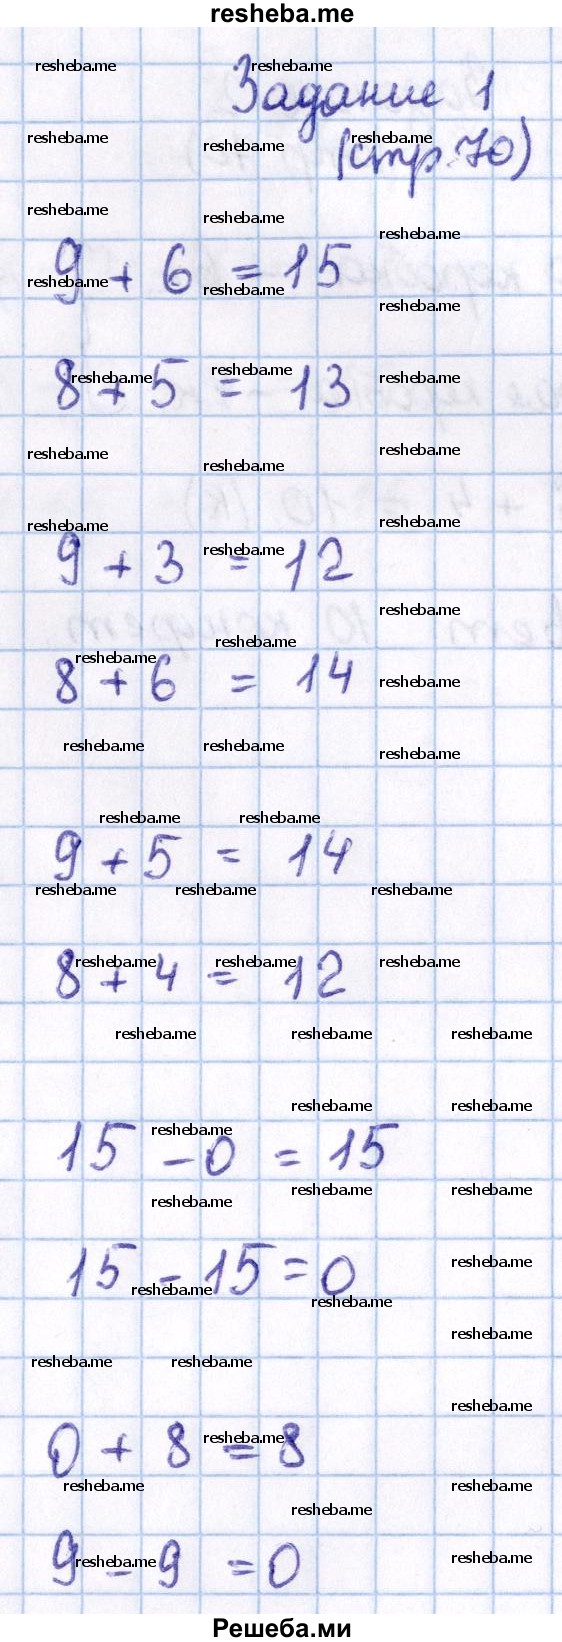 resheba.me
Задание 1
(стр. 70)
9 + 6 = 15
8 + 5 = 13
9 + 3 = 12
8 + 6 = 14
9 + 5 = 14
8 + 4 = 12
15 - 0 = 15
15 - 15 = 0
0 + 8 = 8
9 - 9 = 0
Решеба.ми